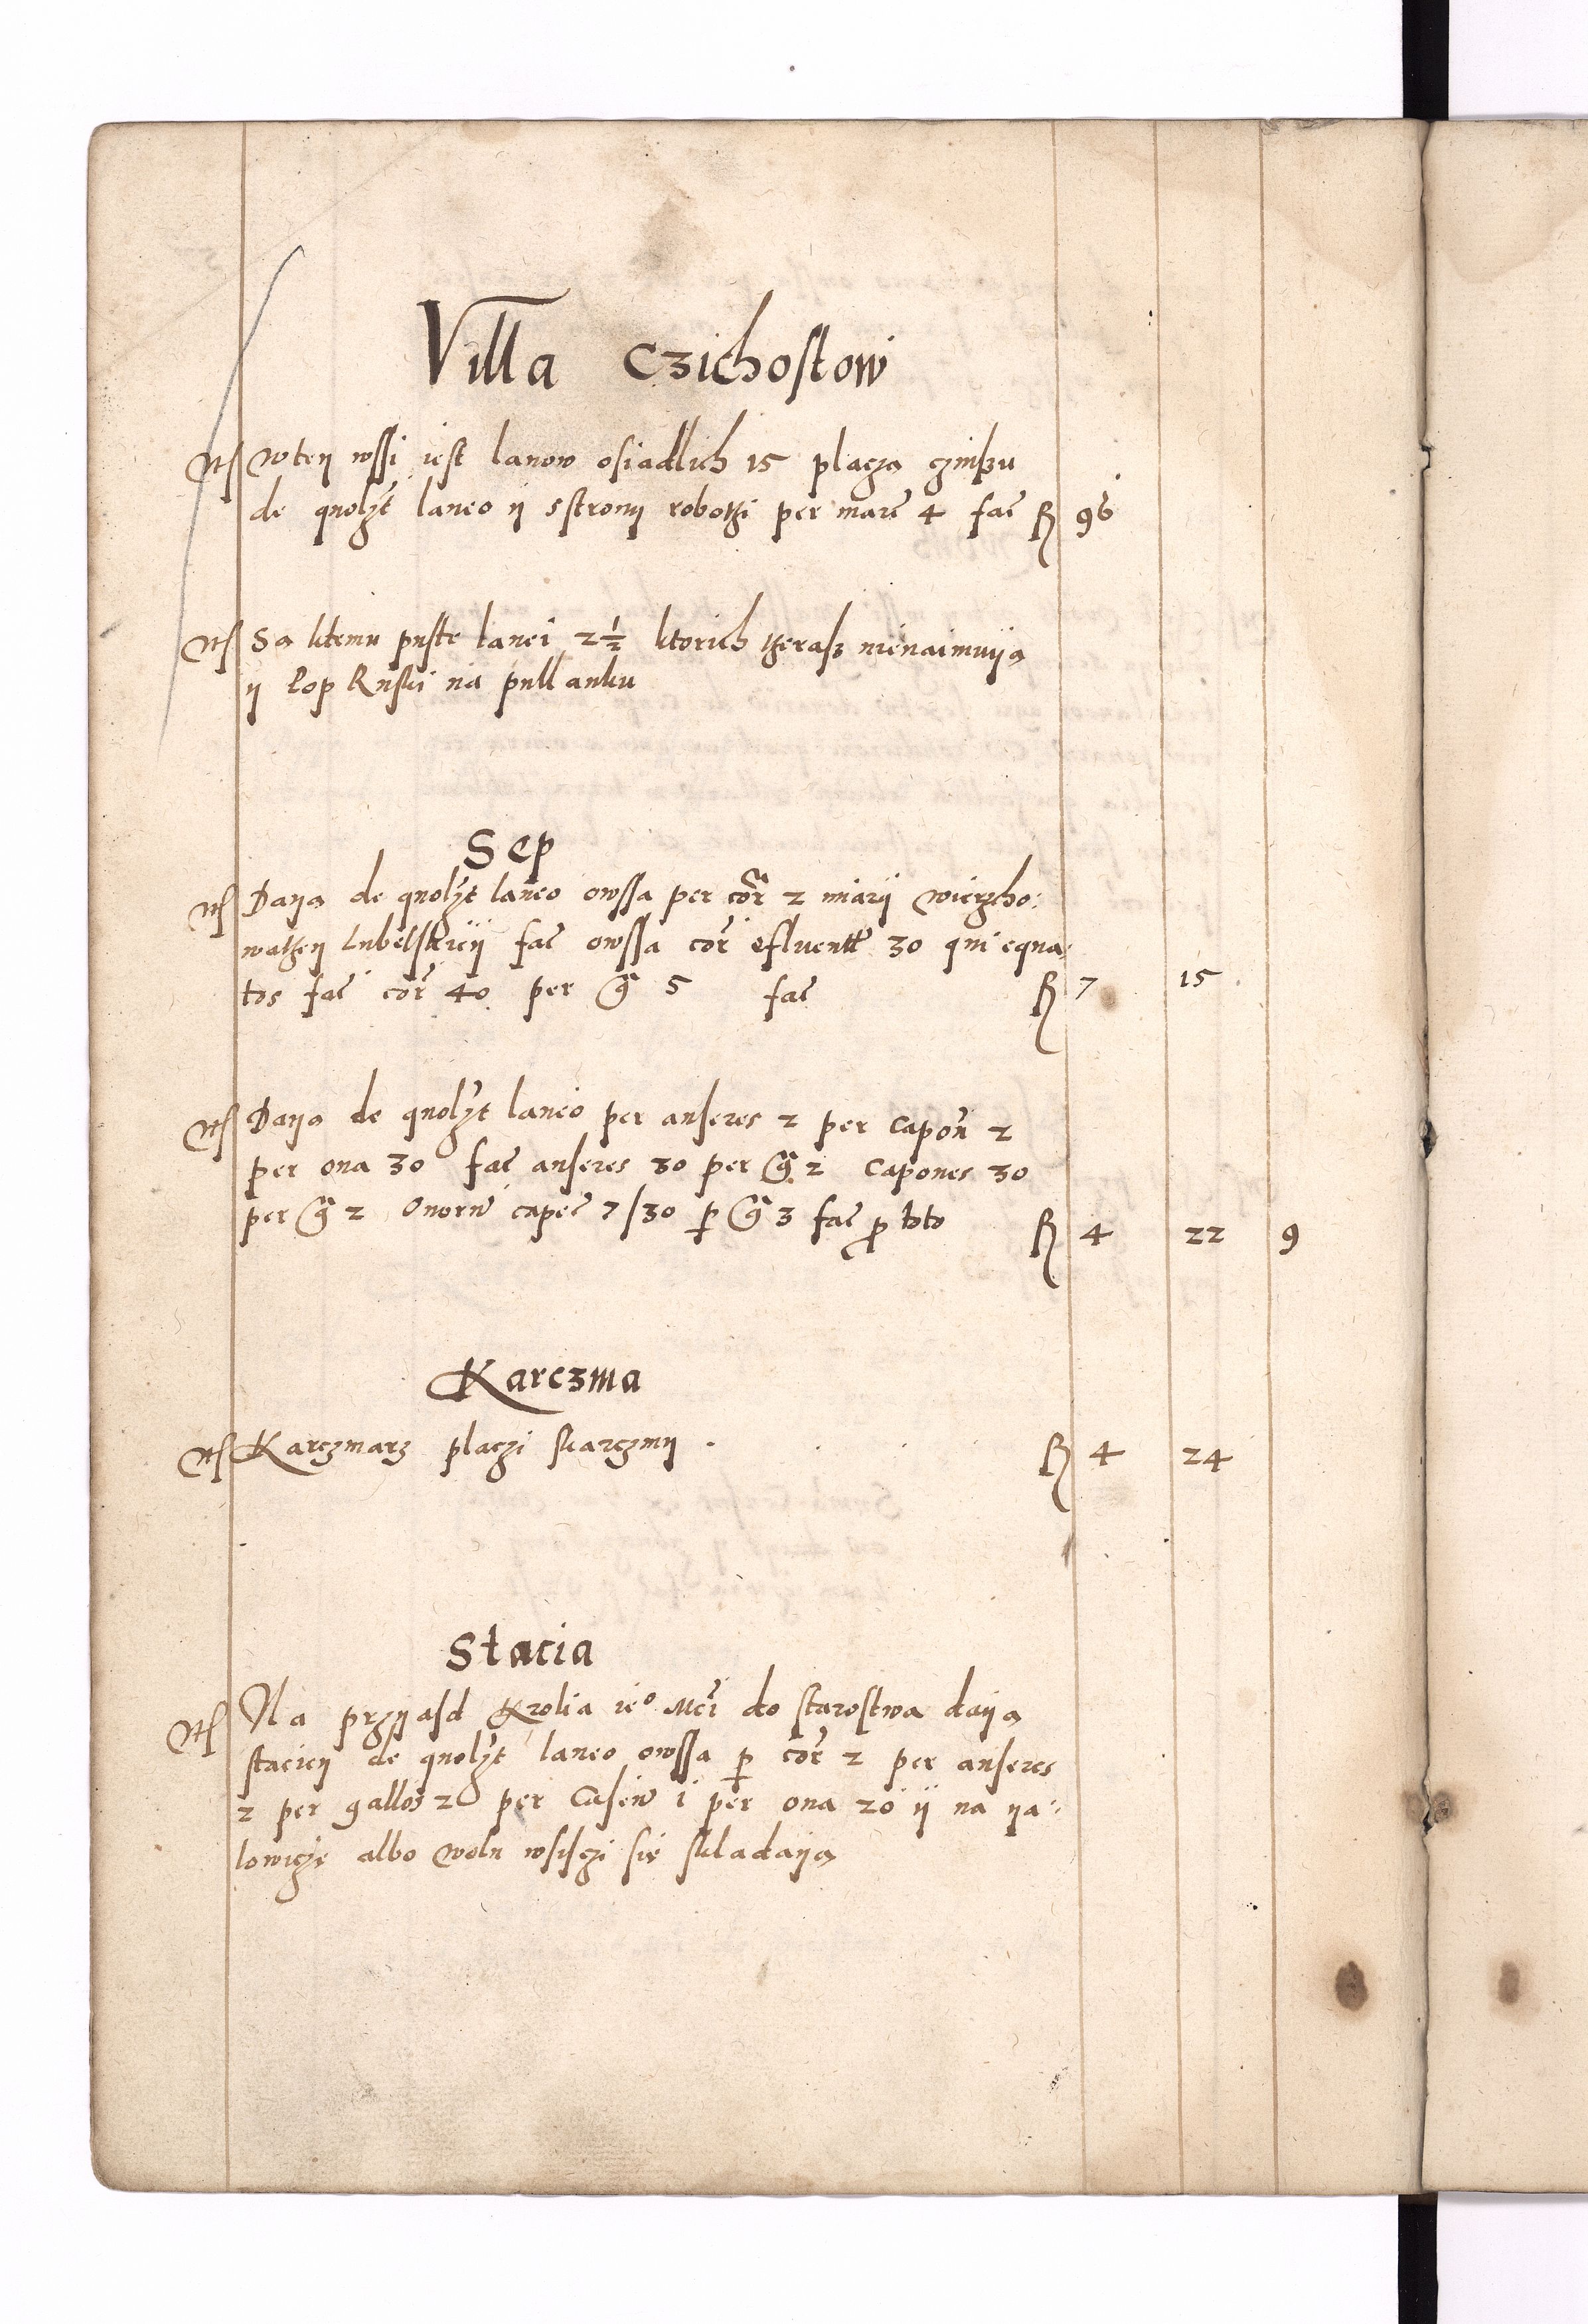 Villa Czichostow
Itẽ W tey wssi iest lanow osiadlich 15 placza czinszu
de quolẏt laneo y sstrony robotzi per marc 4 fac ꝶ 96
Itẽ Sa ktemu puste lanei 2½ ktorich theraz nienaimuiya
y Pop Ruski na pull anku
Sep
Itẽ Daya de quolẏt laneo owssa per cor 2 miary wierzcho:
watzey Lubelskiey fac owssa cor efluent 30 qui equa
tos fac cor 40 per gr 5 fac ꝶ 7 15
Itẽ Daya de quolẏt laneo per anseres 2 per capon 2
per oua 30 fac anseres 30 per gr 2 Capones 30
per gr 2 Ouorum capec 7/30 p gr 3 fac pro toto ꝶ 4 22 9
Karczma
Itẽ Karczmarz placzi skarczmy ꝶ 4 24
Stacia
Itẽ Na przyasd Krolia ieº Mci do starostwa daya
staciey de quolẏt laneo owssa p cor 2 per anseres
2 per gallos 2 per Caseu 1 per oua 20 y na ya:
lowicze albo wolu wsisczi sie skladaya